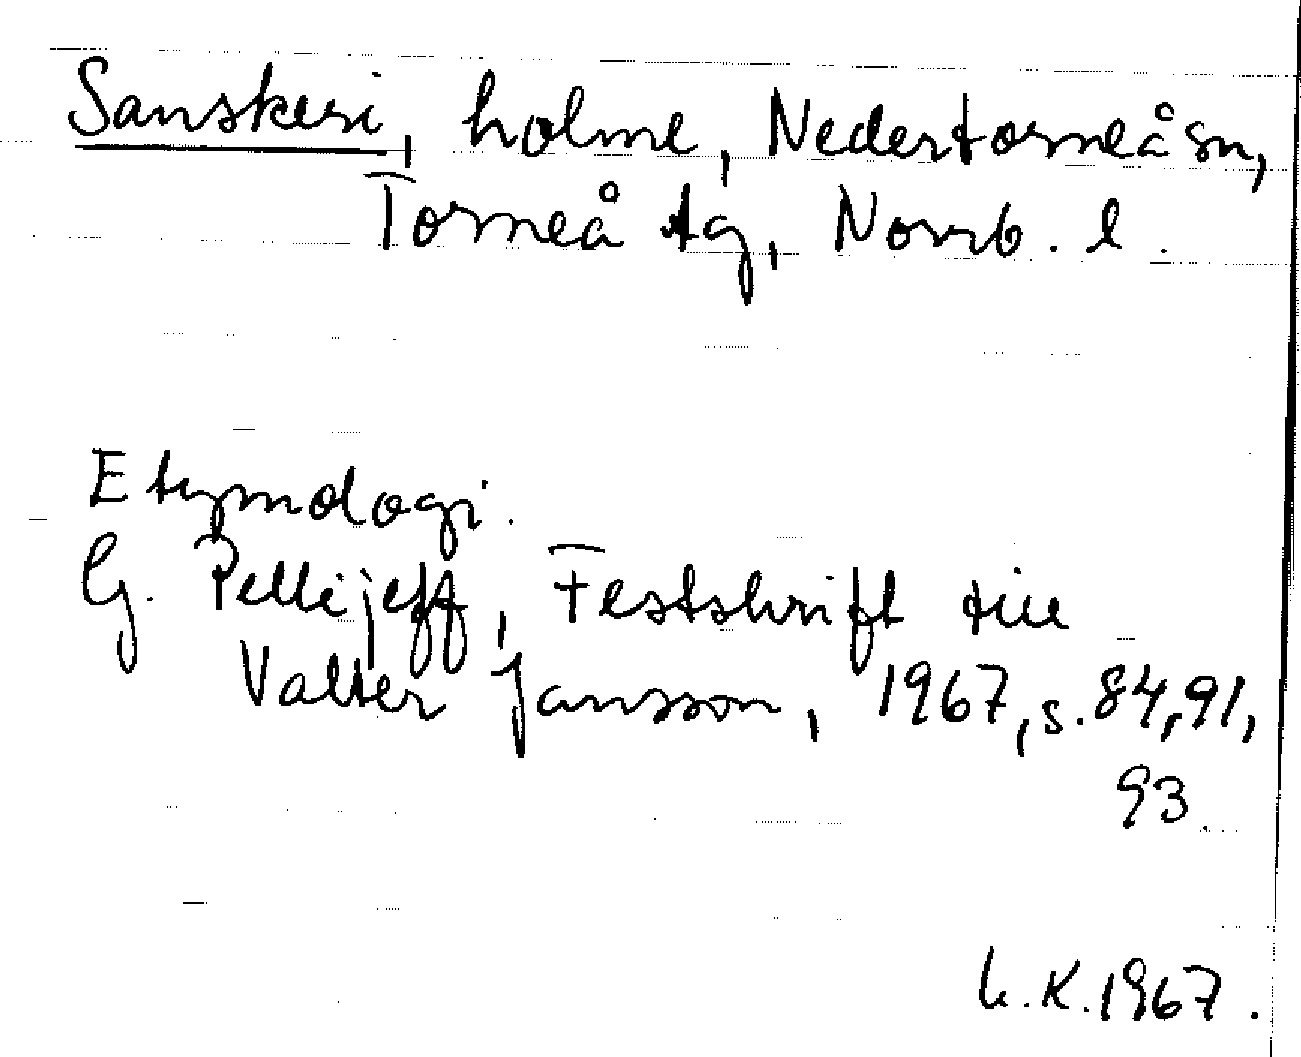 Sanskeri, holme, Nedertorneå sn,
Torneå tg, Norrb. l.
Etymologi.
G. Pellijeff, Festskrift till
Valter Jansson, 1967, s. 84, 91,
93.
L.K. 1967.